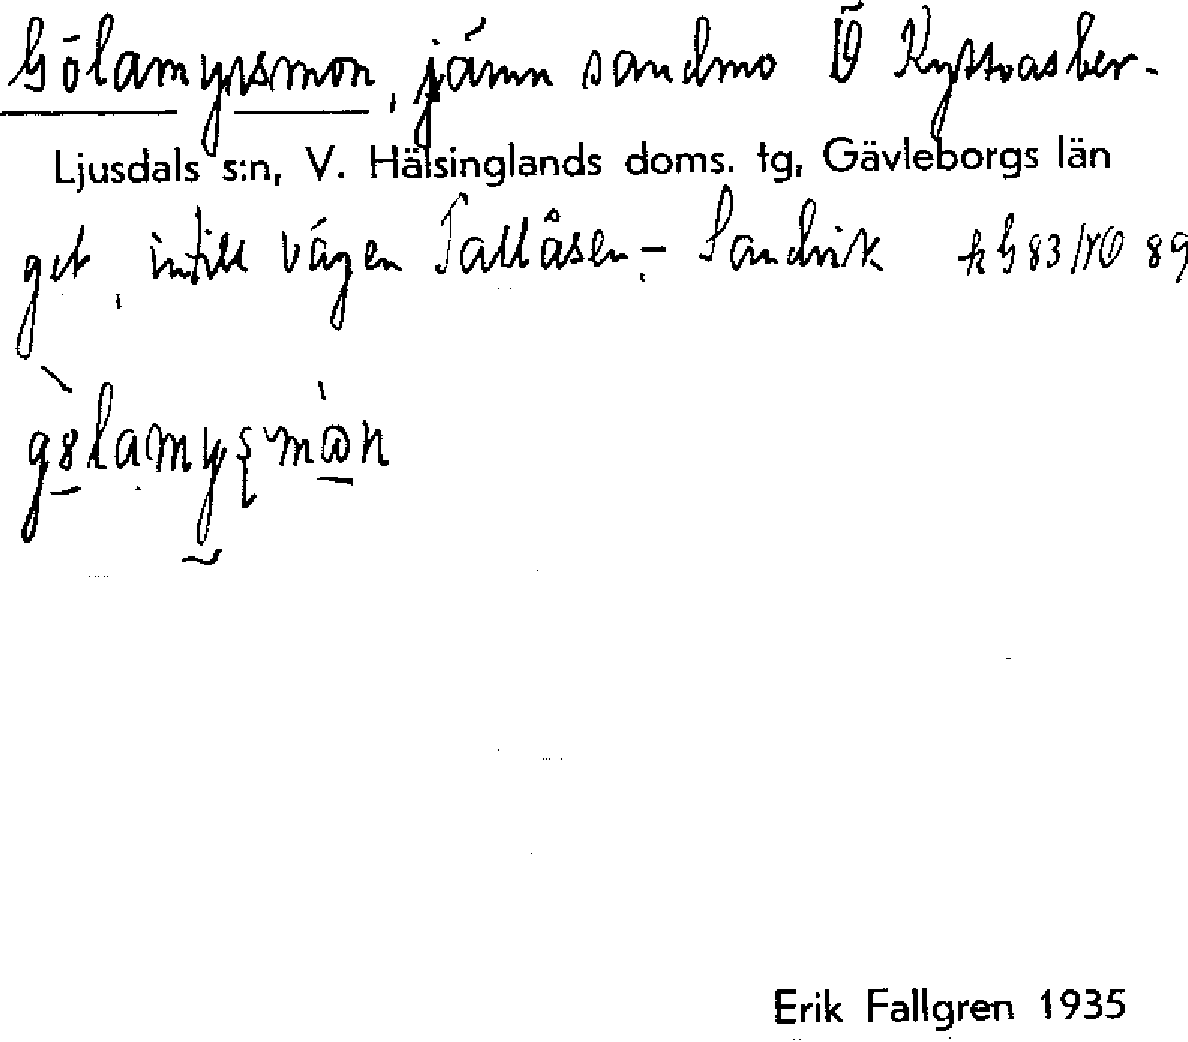 Gölamyrsmon, jämn sandmo Ö Kyttvasber-
Ljusdals s:n, V. Hälsinglands doms. tg, Gävleborgs län
get, intill vägen Tallåsen - Sandvik
Erik Fallgren 1935